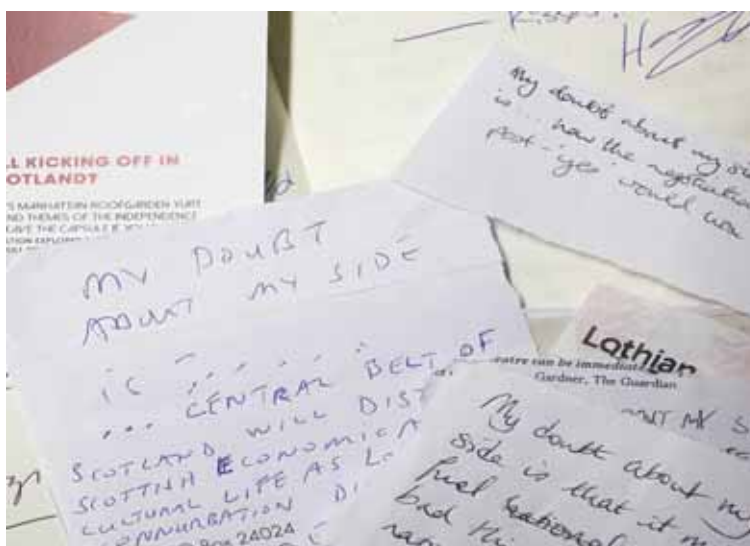 LL KICKING OFF IN
OTLAND?
'S MANHATTAN ROOFGARDEN YURT
ND THEMES OF THE INDEPENDENCE
AVE THE CAPSULE IF YOU
My doubt about my
is... how the negotiation
post-'yes' would
MY DOUBT
ABOUT MY SIDE
IS
... CENTRAL BELT OF
SCOTLAND WILL DIST
SCOTTISH ECONOMICA
CULTURAL LIFE AS
CONNURBATION
24024
Lothian
atre can be immediate
Gardner, The Guardian
MY S
My doubt about my
side is that it m
fuel national
bad thi